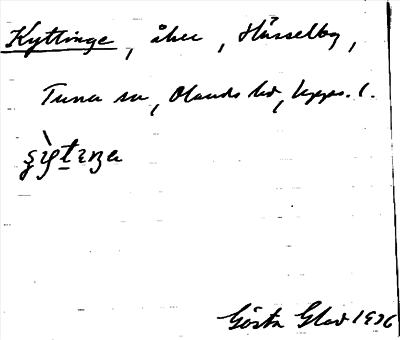 Kyttinge, åker, Hässelby,
Tuna sn, Olands hd, Upps. l.
Gösta Glad 1936